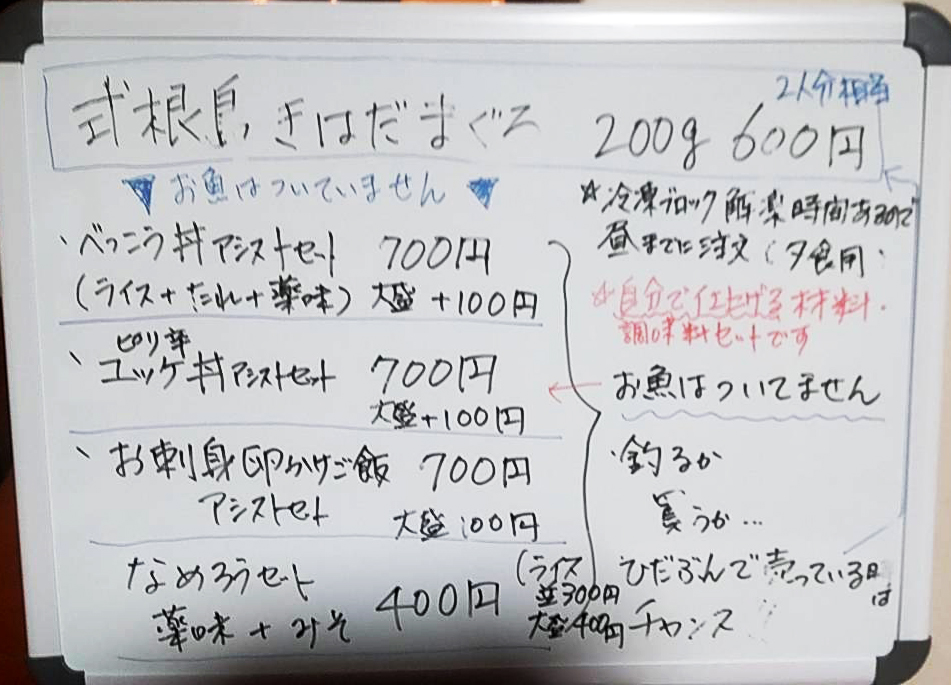 2人分相当
式根島 きはだまぐろ 200g 600円
▼ お魚はついていません ▼
べっこう丼アシストセット 700円
(ライス+たれ+薬味) 大盛+100円
ピリ辛
ユッケ丼アシストセット 700円
大盛+100円
お刺身卵かけご飯 700円
アシストセット 大盛100円
なめろうセット 400円
薬味+みそ
(ライス
並300円
大盛400円
☆冷凍ブロック 解凍時間あるので
昼までに注文(夕食用
☆自分で仕上げる材料・
調味料セットです
お魚はついてません
・釣るか
買うか…
ひだぶんで売っている日は
チャンス